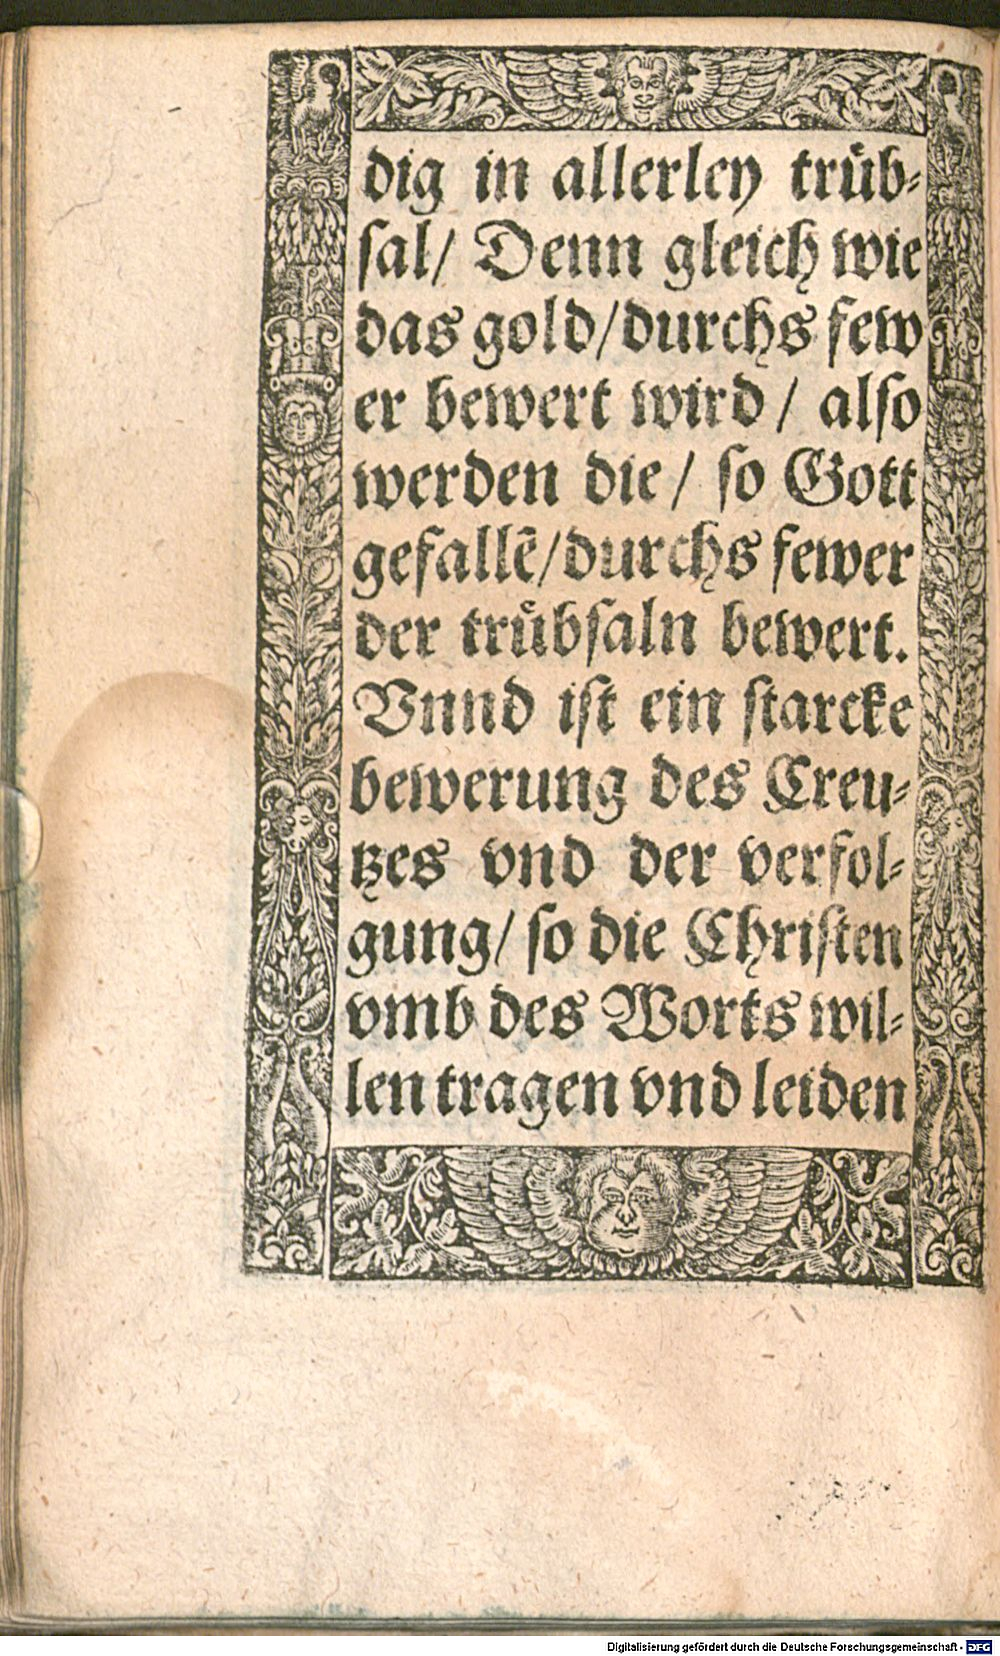 dig in allerley truͤb⸗
ſal/ Denn gleich wie
das gold/durchs few
er bewert wird/ alſo
werden die/ ſo Gott
gefallẽ/durchs fewer
der truͤbſaln bewert.
Vnnd iſt ein ſtarcke
bewerung des Creu⸗
tzes vnd der verfol⸗
gung/ ſo die Chriſten
vmb des Worts wil⸗
len tragen vnd leiden
Digitalisierung gefördert durch die Deutsche Forschungsgemeinschaft - DFG